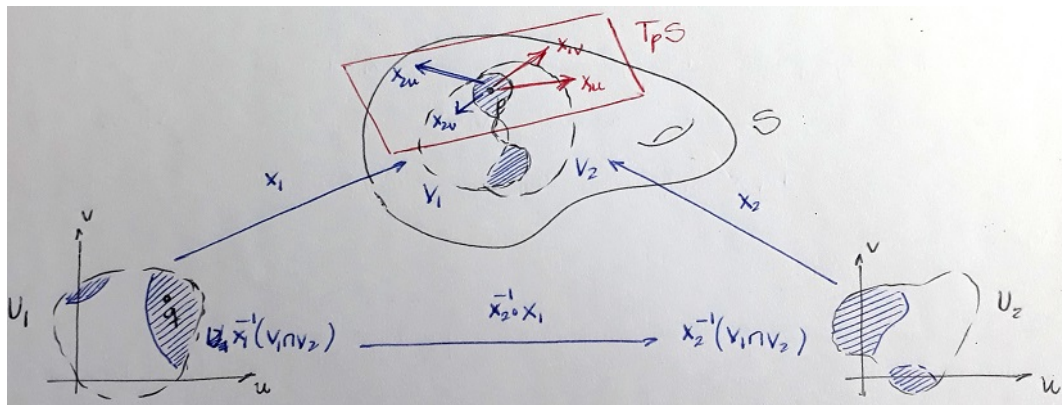 TpS
x₁ᵥ
x₂ᵤ
x₁ᵤ
x₂ᵥ
p
S
x₁
V₁
V₂
x₂
v
v
U₁
q
x₁⁻¹(V₁∩V₂)
x₂⁻¹∘x₁
x₂⁻¹(V₁∩V₂)
U₂
u
u